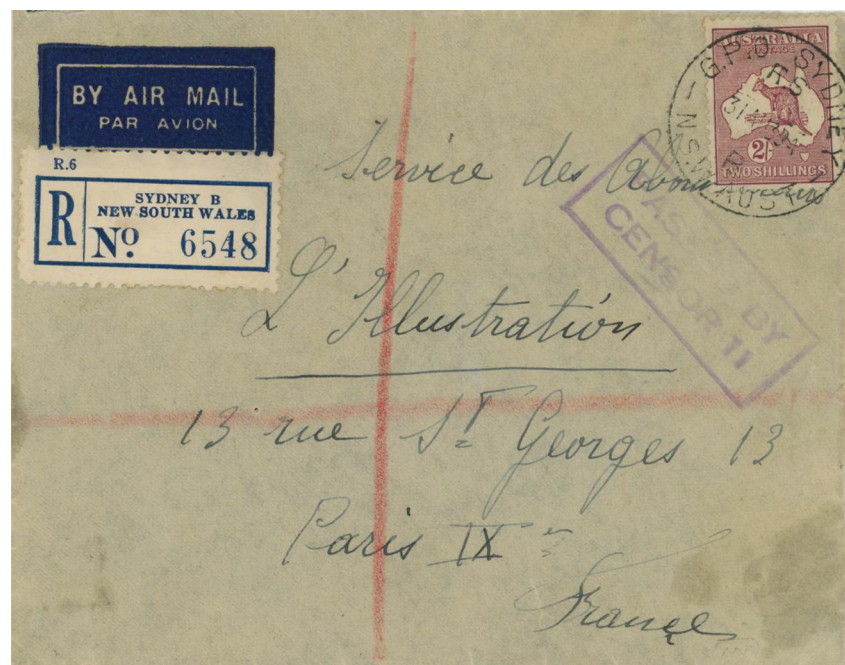 BY AIR MAIL
PAR AVION
R.6
R
SYDNEY B
NEW SOUTH WALES
Nº 6548
AUSTRALIA
POSTAGE
2/-
TWO SHILLINGS
G.P.O SYDNEY
N.S.W. AUST
PASSED BY
CENSOR 11
Service des Abonnements
L'Illustration
13 rue St Georges 13
Paris IX
France